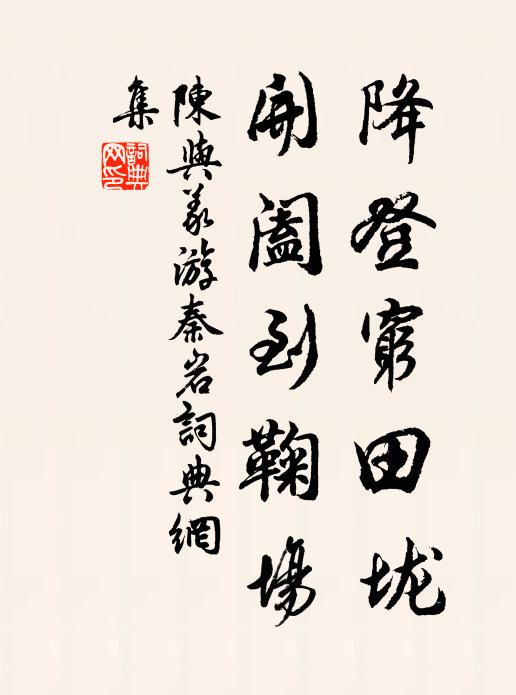 降登窮田垅
開阖到鞠場
陳與義游秦岩詞典網
集
詞典網印